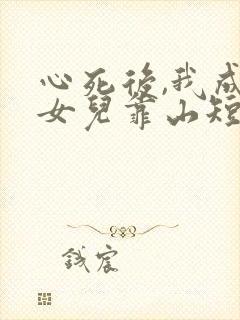 心死後,我成
女兒靠山短
錢宸